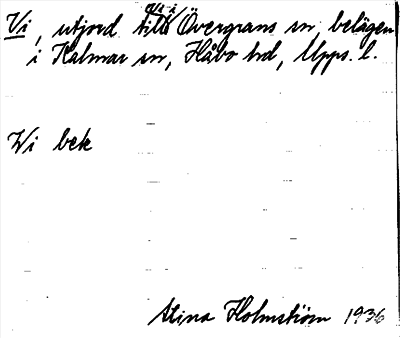 Vi, utjord till Övergrans sn, belägen
i Kalmar sn, Håbo hd, Upps. l.
Wi bek
Stina Holmström 1936